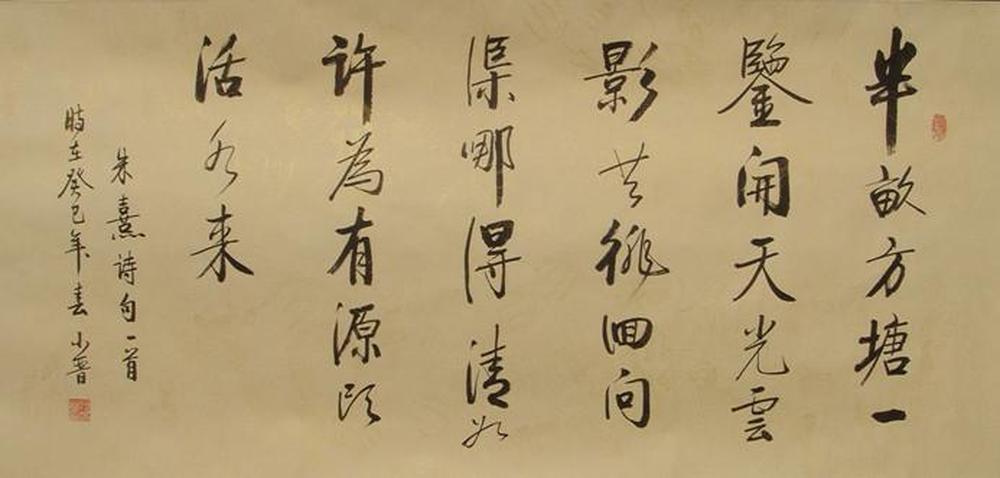 半畝方塘一
鑒開天光雲
影共徘囬问
渠哪得清如
許為有源頭
活水来
朱熹诗句一首
時在癸巳年春小普